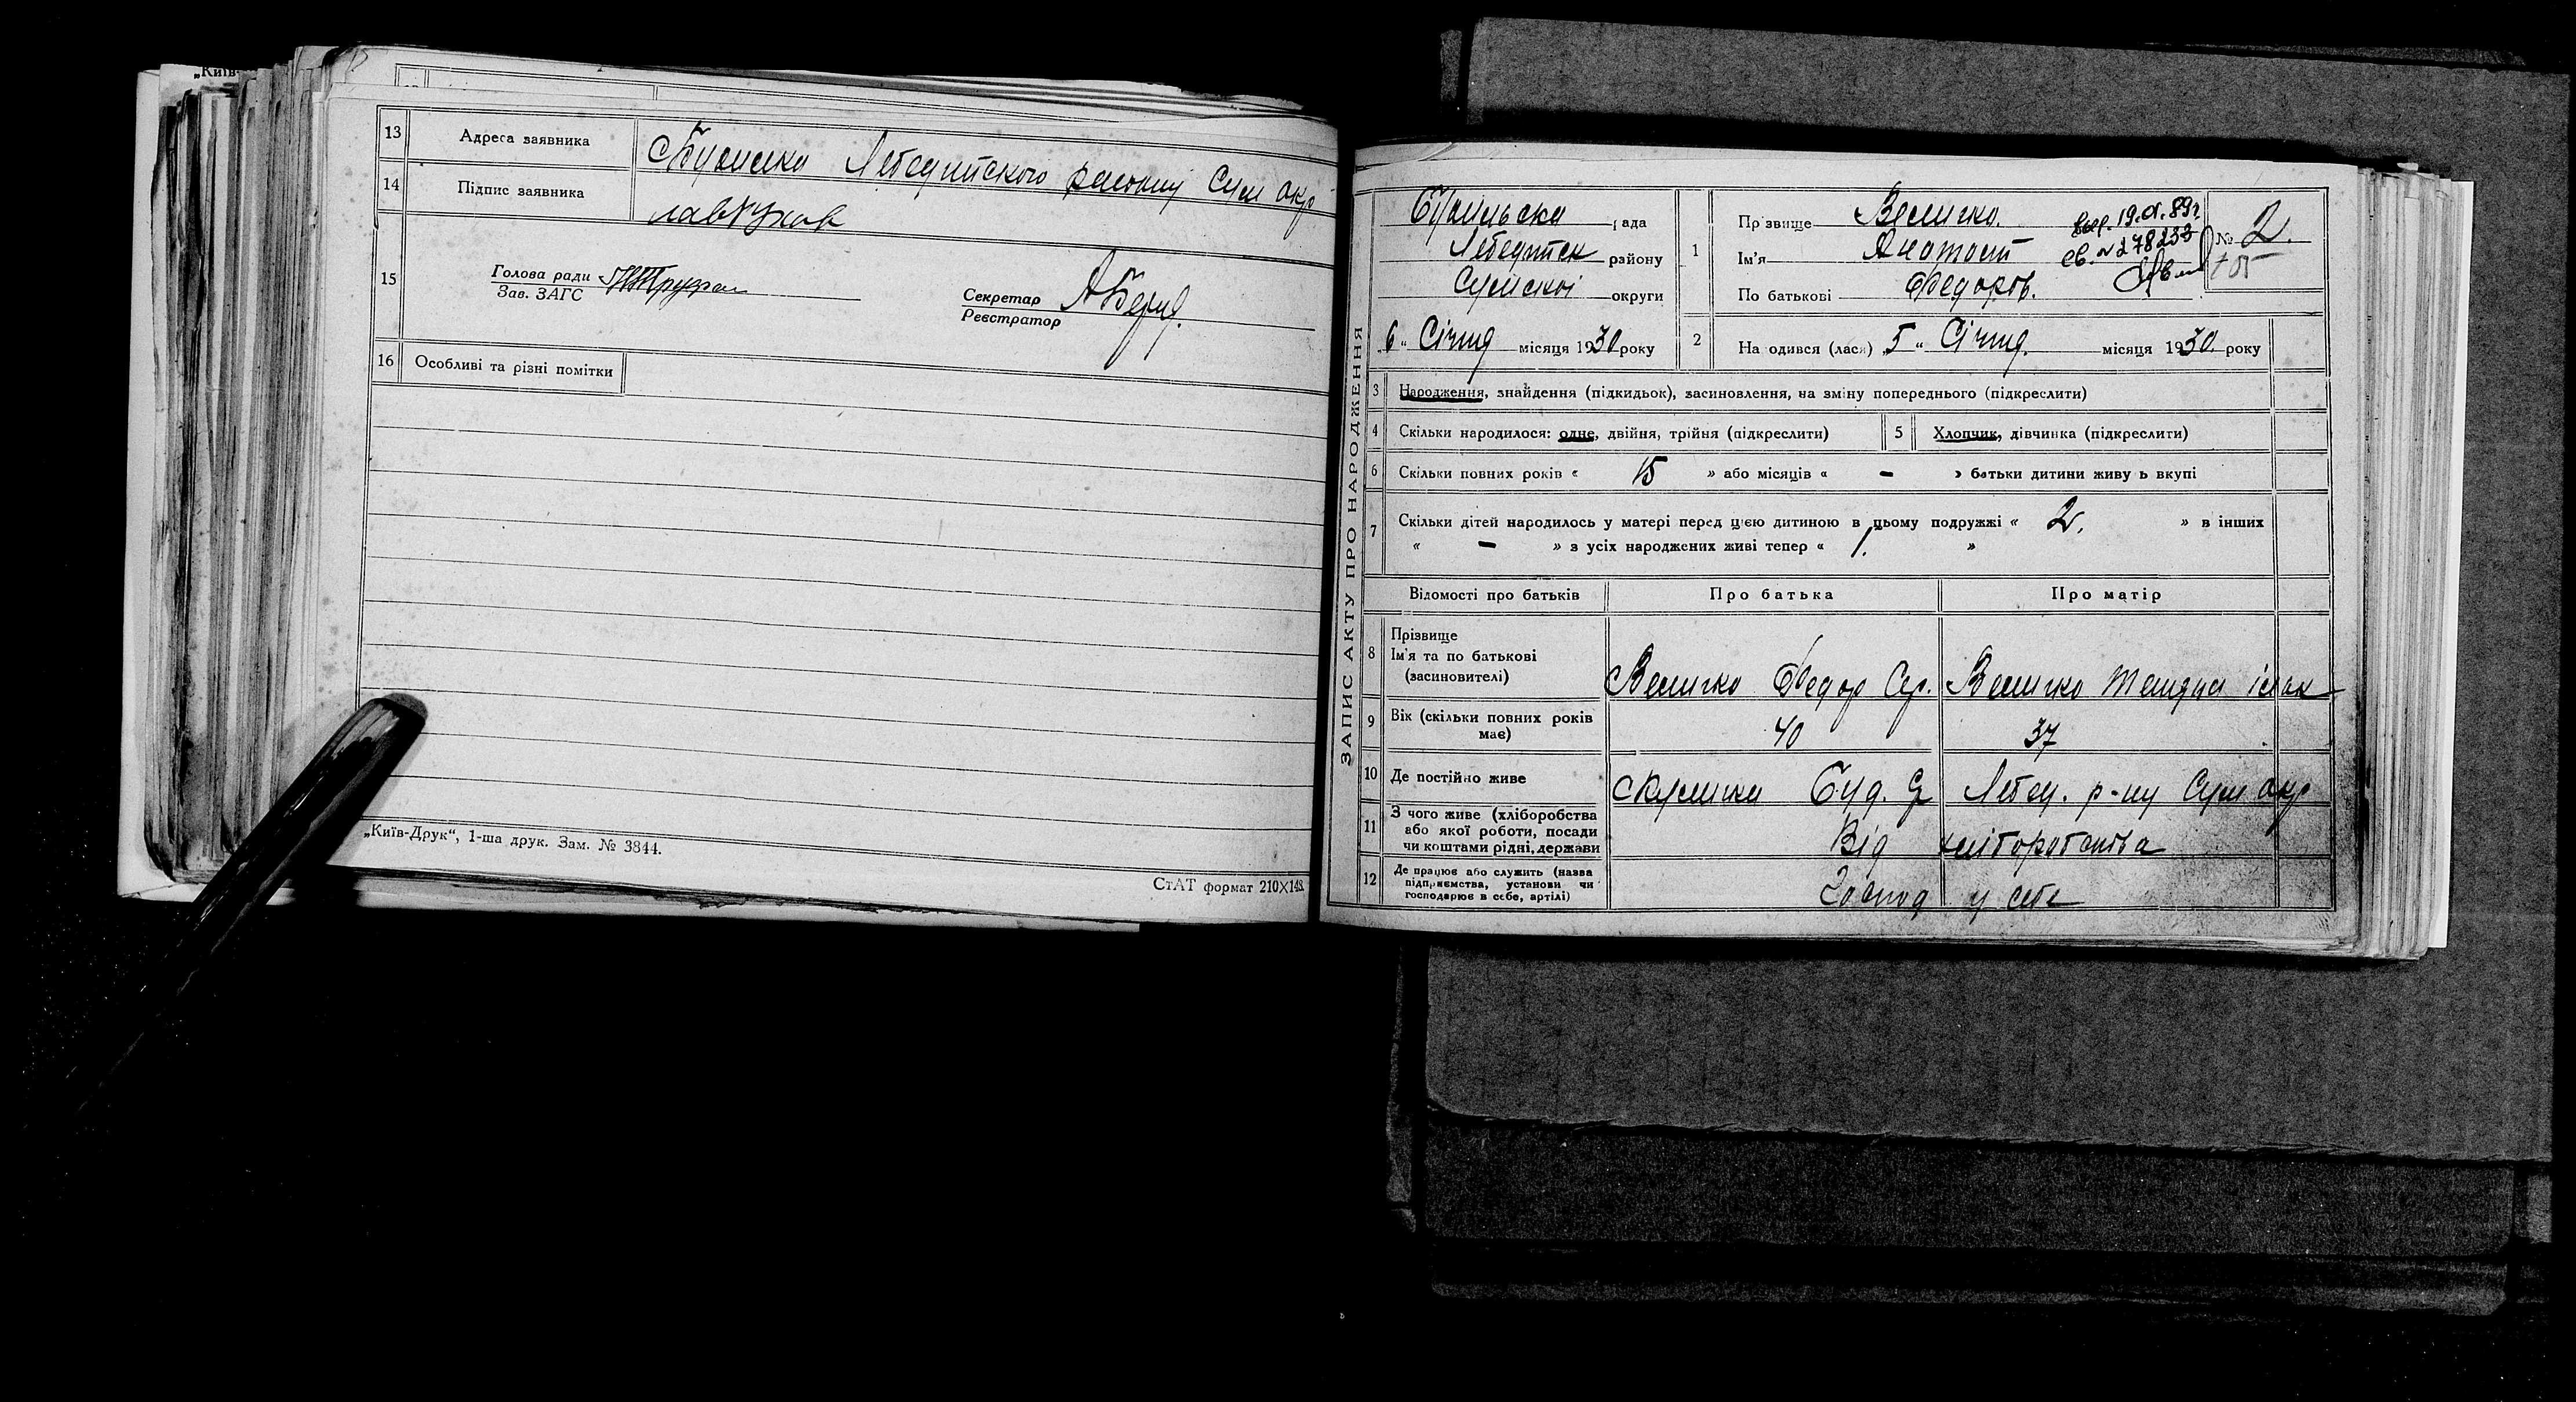 „Київ-
13 Адреса заявника Лебединского району Сум окр
14 Підпис заявника
15 Голова ради
Зав. ЗАГС
Секретар
Реєстратор
16 Особливі та різні помітки
„Київ-Друк“, 1-ша друк. Зам. № 3844.
СтАТ формат 210×148.
ЗАПИС АКТУ ПРО НАРОДЖЕННЯ
рада
Лебединск району
Сумскої округи
„6“ Січня місяця 1930 року
1 Прізвище Величко.
Ім'я
По батькові Федоров.
выд. 19.01.89г
св. № 278233
№ 2.
2 Народився (лася) „5“ Січня. місяця 1930 року
3 Народження, знайдення (підкидьок), засиновлення, на зміну попереднього (підкреслити)
4 Скільки народилося: одне, двійня, трійня (підкреслити)
5 Хлопчик, дівчинка (підкреслити)
6 Скільки повних років « 15 » або місяців « - » батьки дитини живуть вкупі
7 Скільки дітей народилось у матері перед цією дитиною в цьому подружжі « 2. » в інших
« - » з усіх народжених живі тепер « 1. »
Відомості про батьків Про батька Про матір
8 Прізвище
Ім'я та по батькові
(засиновителі)
Величко Федор Сер. Величко
9 Вік (скільки повних років
має)
40 37
10 Де постійно живе Лебед. р-ну Сум окр
11 З чого живе (хліборобства
або якої роботи, посади
чи коштами рідні, держави
Від хліборобства
12 Де працює або служить (назва
підприємства, установи чи
господарює в себе, артілі)
Господ у себе